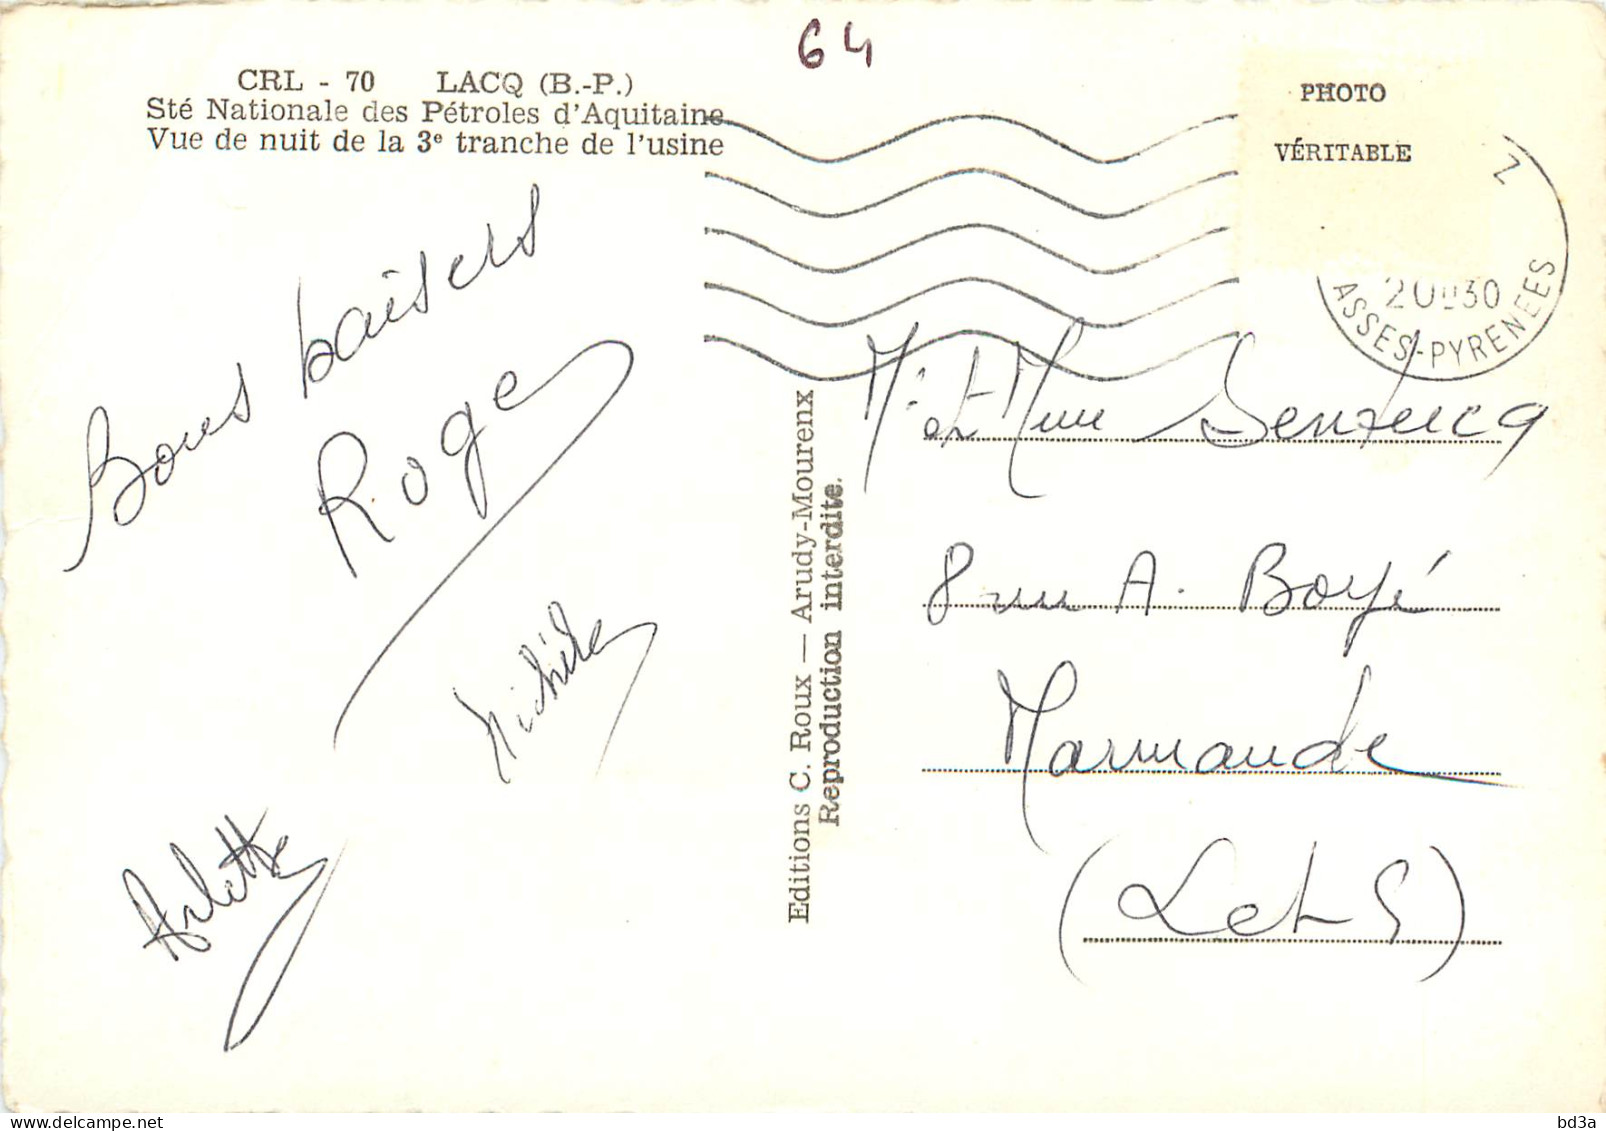 64
CRL - 70 LACQ (B.-P.)
Sté Nationale des Pétroles d'Aquitaine
Vue de nuit de la 3e tranche de l'usine
PHOTO
VÉRITABLE
Z
20H30
ASSES-PYRENEES
Bons baisers
Roger
Michèle
Arlette
Editions C. Roux — Arudy-Mourenx
Reproduction interdite.
Mr et Mme
8 rue A. Boyé
Marmande
(L et G)
delcampe.net
bd3a